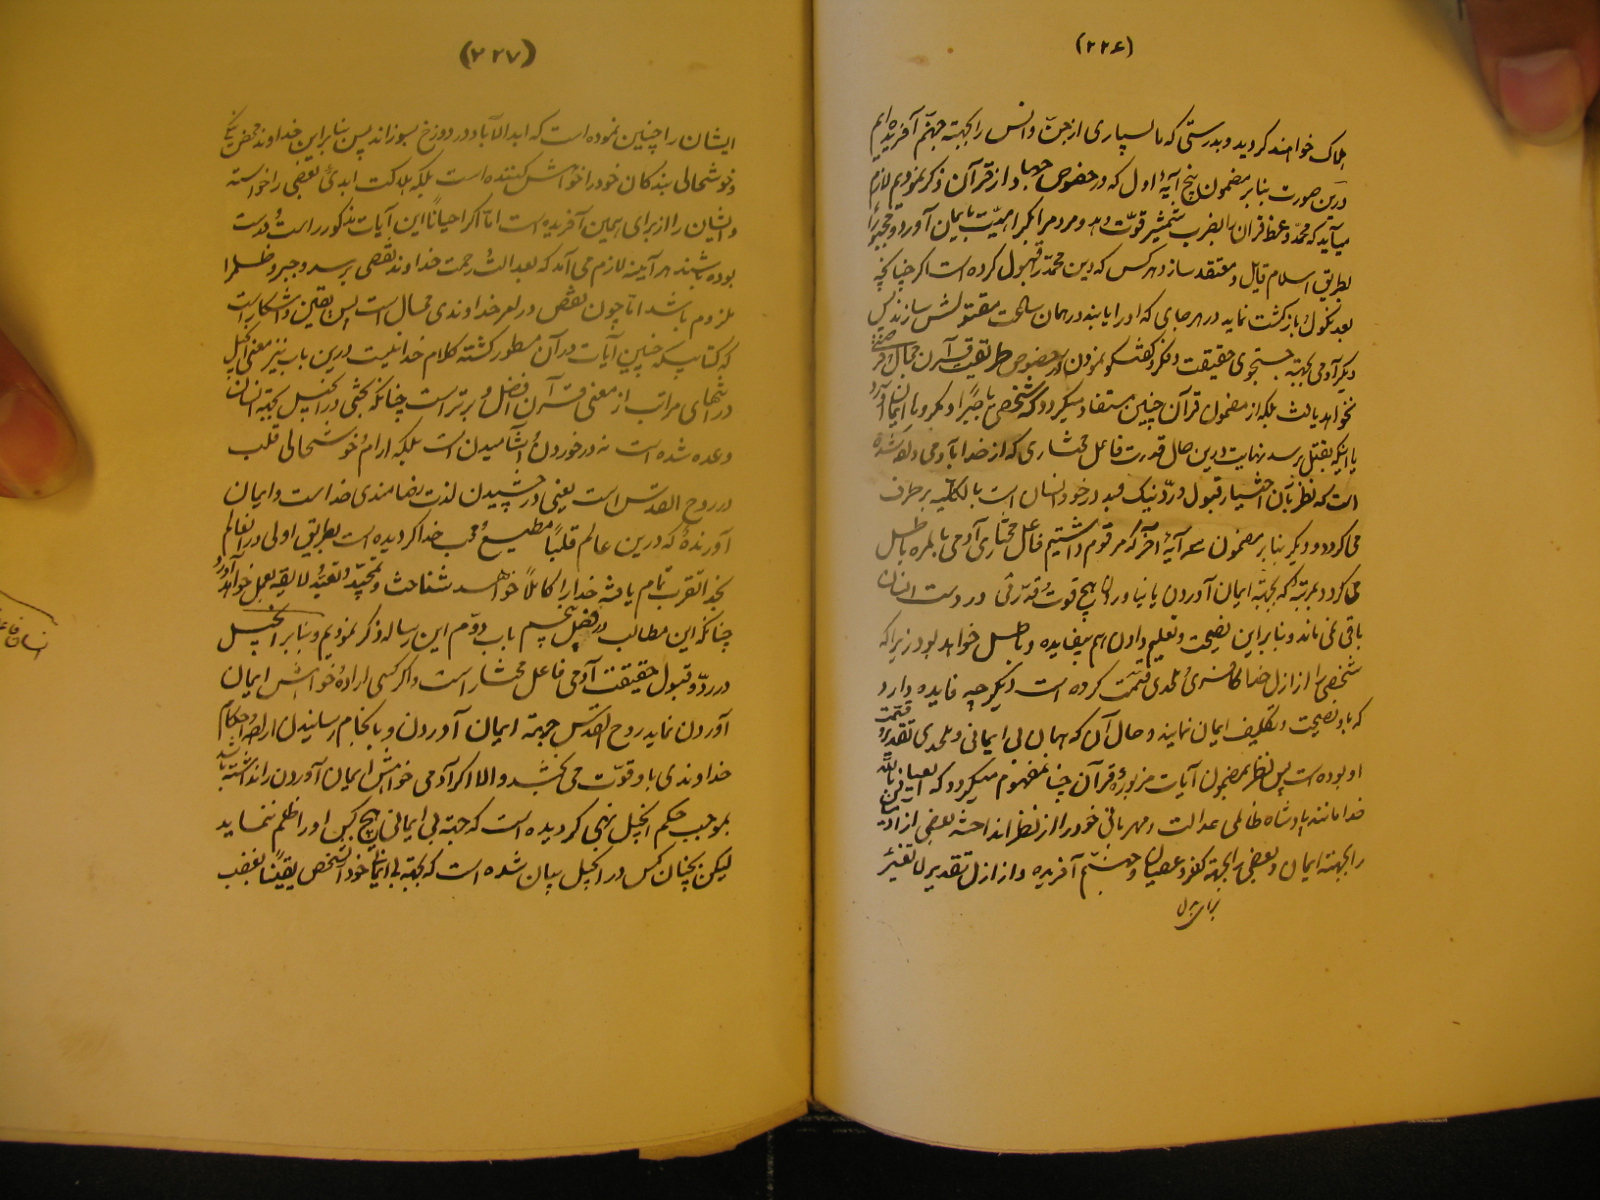 (۲۲۶)
هلاک خواهند کردید و بدرستی که ما بسیاری از جن و انس را بجهته جهنم آفریده ایم
درین صورت بنا بر مضمون پنج آیهٔ اول که در خصوص جهاد از قرآن ذکر نمودیم لازم
میآید که محمد وعظ قرآن را بضرب شمشیر قوت دهد و مردم را بکراهیت بایمان آورد و مجبوراً
بطریق اسلام قایل و معتقد سازد و هر کس که دین محمد را قبول کرده است اکر چنانچه
بعد نکول و بازکشت نماید در هر جای که او را یابند در همان ساعت مقتولش سازند پس
دیکر آدمی بجهته جستجوی حقیقت و تفکر و کفتکو نمودن در خصوص طریقت قرآن مجال و فرصتی
نخواهد یافت بلکه از مضمون قرآن چنین مستفاد میکردد که شخصی یا جبراً و مکروهاً ایمان آورد
یا اینکه بقتل برسد نهایت درین حال قدرت فاعل مختاری که از خدا بآدمی داده شده
است که نظر بآن اختیار قبول و رد نیک و بد در خود انسان است بالکلیه برطرف
می کردد و دیکر بنا بر مضمون سه آیهٔ آخر که مرقوم داشتیم فاعل مختاری آدمی بالمره باطل
می کردد بمرتبهٔ که بجهته ایمان آوردن یا نیاوردن هیچ قوت و قدرتی در دست انسان
باقی نمی ماند و بنا برین نصیحت و تعلیم دادن هم بیفایده و باطل خواهد بود زیرا که
شخصی را از ازل خدا کافری و ملحدی قسمت کرده است دیکر چه فایده دارد
که باو نصیحت و تکلیف ایمان نمایند و حال آن که همان بی ایمانی و ملحدی تقدیر و قسمت
او بوده است پس نظر بمضمون آیات مزبورهٔ قرآن چنان مفهوم میکردد که العیاذ بالله
خدا مانند پادشاه ظالمی عدالت و مهربانی خود را از نظر انداخته بعضی از
را بجهته ایمان و بعضی را بجهته کفر و عصیان و جهنم آفریده و از ازل تقدیر لا تغیر
برای
(۲۲۷)
ایشان را چنین نموده است که ابد الآباد در دوزخ بسوزاند پس بنا برین خداوند محض نیکی
و خوشحالی بندکان خود را خواهش کننده است بلکه هلاکت ابدی بعضی را خواسته
و ایشان را از برای همین آفریده است اما اکر احیاناً این آیات مذکور راست و درست
بوده باشند هر آینه لازم می آمد که بعدالت و رحمت خداوند نقصی برسد و جبر و ظلم را
ملزوم باشد اما چون نقص در امر خداوندی محال است پس یقین و آشکار است
که کتابیکه چنین آیات در آن مسطور کشته کلام خدا نیست درین باب نیز معنی انجیل
در انتهای مراتب از معنی قرآن افضل و برتر است چنانکه نجاتی در انجیل بجهته انسان
وعده شده است نه در خوردن و آشامیدن است بلکه آرام و خوشحالی قلب
در روح القدس است یعنی در چشیدن لذت رضامندی خداست و ایمان
آورندهٔ که درین عالم قلباً مطیع و محب خدا کردیده است بطریق اولی در آنعالم
بخدا تقرب تام یافته خدا را کاملاً خواهد شناخت و تمجید و تعبد لایقه بعمل خواهد آورد
چنانکه این مطالب در فصل پنجم باب دوم این رساله ذکر نمودیم و بنا بر انجیل
در رد و قبول حقیقت آدمی فاعل مختار است و اکر کسی اراده و خواهش ایمان
آوردن نماید روح القدس جهته ایمان آوردن و بانجام رسانیدن اراده و احکام
خداوندی باو قوت می بخشد و الا اکر آدمی خواهش ایمان آوردن را نداشته باشد
بموجب حکم انجیل نهی کردیده است که جهته بی ایمانی هیچ کس او را ظلم ننماید
لیکن بچنان کس در انجیل بیان شده است که بجهته بی ایمانی خود آن شخص یقیناً بغضب